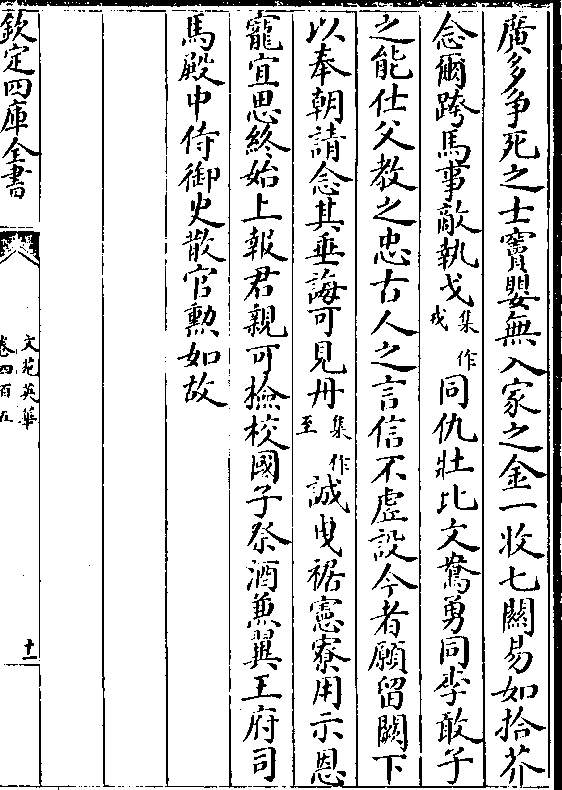 廣多争死之士竇嬰無入家之金一收七關易如拾芥
念爾跨馬事敵執戈集作戎同仇壯比文鴦勇同李敢子
之能仕父教之忠古人之言信不虚設今者願留闕下
以奉朝請念其垂誨可見丹集作至誠曵裾憲寮用示恩
寵宜思終始上報君親可檢校國子祭酒兼冀王府司
馬殿中侍御史散官勲如故
欽定四庫全書
文苑英華
卷四百五
十一